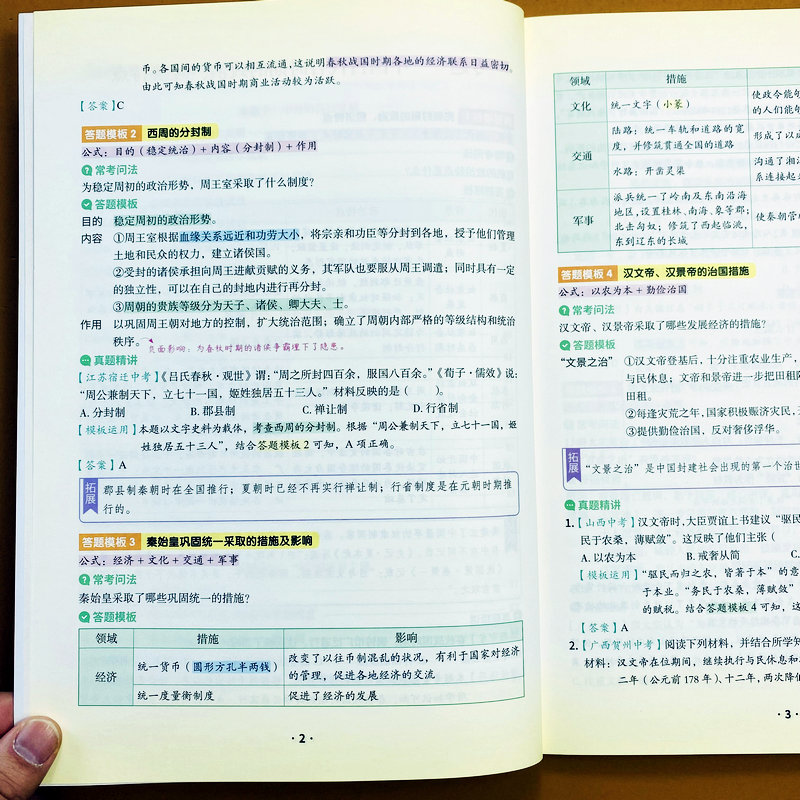 币。各国间的货币可以相互流通，这说明春秋战国时期各地的经济联系日益密切。
由此可知春秋战国时期商业活动较为活跃。
【答案】C
答题模板2 西周的分封制
公式：目的（稳定统治）+内容（分封制）+作用
常考问法
为稳定周初的政治形势，周王室采取了什么制度？
答题模板
目的 稳定周初的政治形势。
内容 ①周王室根据血缘关系远近和功劳大小，将宗亲和功臣等分封到各地，授予他们管理
土地和民众的权力，建立诸侯国。
②受封的诸侯承担向周王进献贡赋的义务，其军队也要服从周王调遣；同时具有一定
的独立性，可以在自己的封地内进行再分封。
③周朝的贵族等级分为天子、诸侯、卿大夫、士。
作用 以巩固周王朝对地方的控制，扩大统治范围；确立了周朝内部严格的等级结构和统治
秩序。
负面影响：为春秋时期的诸侯争霸埋下了隐患。
真题精讲
【江苏宿迁中考】《吕氏春秋·观世》谓：“周之所封四百余，服国八百余。”《荀子·儒效》说：
“周公兼制天下，立七十一国，姬姓独居五十三人。”材料反映的是（ ）。
A. 分封制 B. 郡县制 C. 禅让制 D. 行省制
【模板运用】本题以文字史料为载体，考查西周的分封制。根据“周公兼制天下，立七十一国，姬
姓独居五十三人”，结合答题模板2可知，A项正确。
【答案】A
拓展
郡县制秦朝时在全国推行；夏朝时已经不再实行禅让制；行省制度是在元朝时期推
行的。
答题模板3 秦始皇巩固统一采取的措施及影响
公式：经济+文化+交通+军事
常考问法
秦始皇采取了哪些巩固统一的措施？
答题模板
领域 措施 影响
经济
统一货币（圆形方孔半两钱）
改变了以往币制混乱的状况，有利于国家对经济
的管理，促进各地经济的交流
统一度量衡制度 促进了经济的发展
·2·
领域 措施
文化 统一文字（小篆）
使政令能够
的人们能
交通
陆路：统一车轨和道路的宽
度，并修筑贯通全国的道路
形成了以
水路：开凿灵渠
沟通了湘
系连接起
军事
派兵统一了岭南及东南沿海
地区，设置桂林、南海、象等郡；
北击匈奴；修筑了西起临洮，
东到辽东的长城
使秦朝管
答题模板4 汉文帝、汉景帝的治国措施
公式：以农为本+勤俭治国
常考问法
汉文帝、汉景帝采取了哪些发展经济的措施？
答题模板
“文景之治” ①汉文帝登基后，十分注重农业生产，
与民休息；文帝和景帝进一步把田租
田租。
②每逢灾荒之年，国家积极赈济灾民，
③提倡勤俭治国，反对奢侈浮华。
拓展
“文景之治”是中国封建社会出现的第一个治世
真题精讲
1.【山西中考】汉文帝时，大臣贾谊上书建议“驱民
民于农桑，薄赋敛”。这反映了他们主张（
A. 以农为本 B. 戒奢从简 C.
【模板运用】“驱民而归之农，皆著于本”的意
于本业。“务民于农桑，薄赋敛”
的赋税。结合答题模板4可知，这
【答案】A
2.【广西贺州中考】阅读下列材料，并结合所学知
材料：汉文帝在位期间，继续执行与民休息和
二年（公元前178年）、十二年，两次降低
·3·